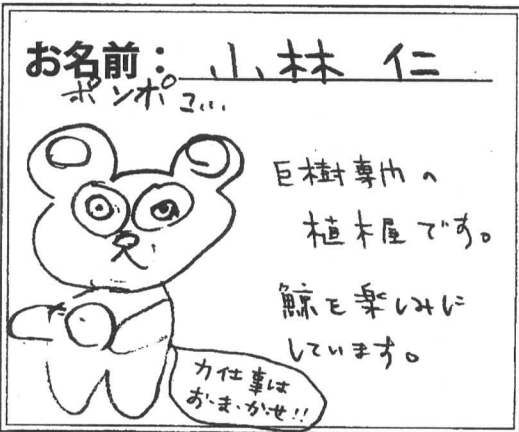 お名前：小林 仁
ポンポコ...
巨樹専門の
植木屋です。
鯨を楽しみに
しています。
力仕事は
お・ま・かせ!!